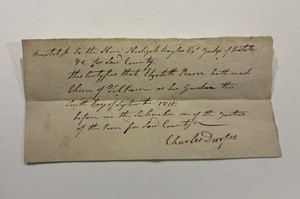 Bristol ss To the Hon. Hezekiah Esqr Judge of Probate
&c for said County
This Certifies that Elizabeth hath made
Choice of Job as her Guardian this
Tenth Day of September 1811
before me the Subscriber one of the Justices
of the Peace for said County
Charles Durfee